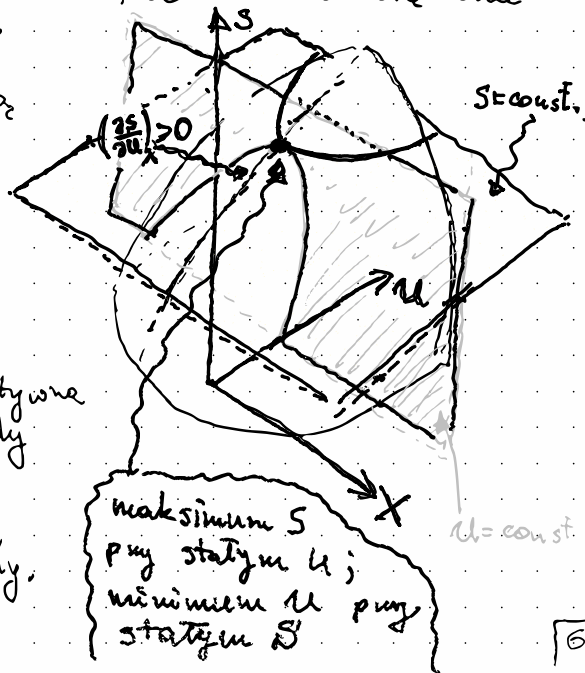 S
S=const.
(∂S/∂U)ₓ>0
U
X
U=const
maksimum S
przy stałym U;
minimum U przy
stałym S
6